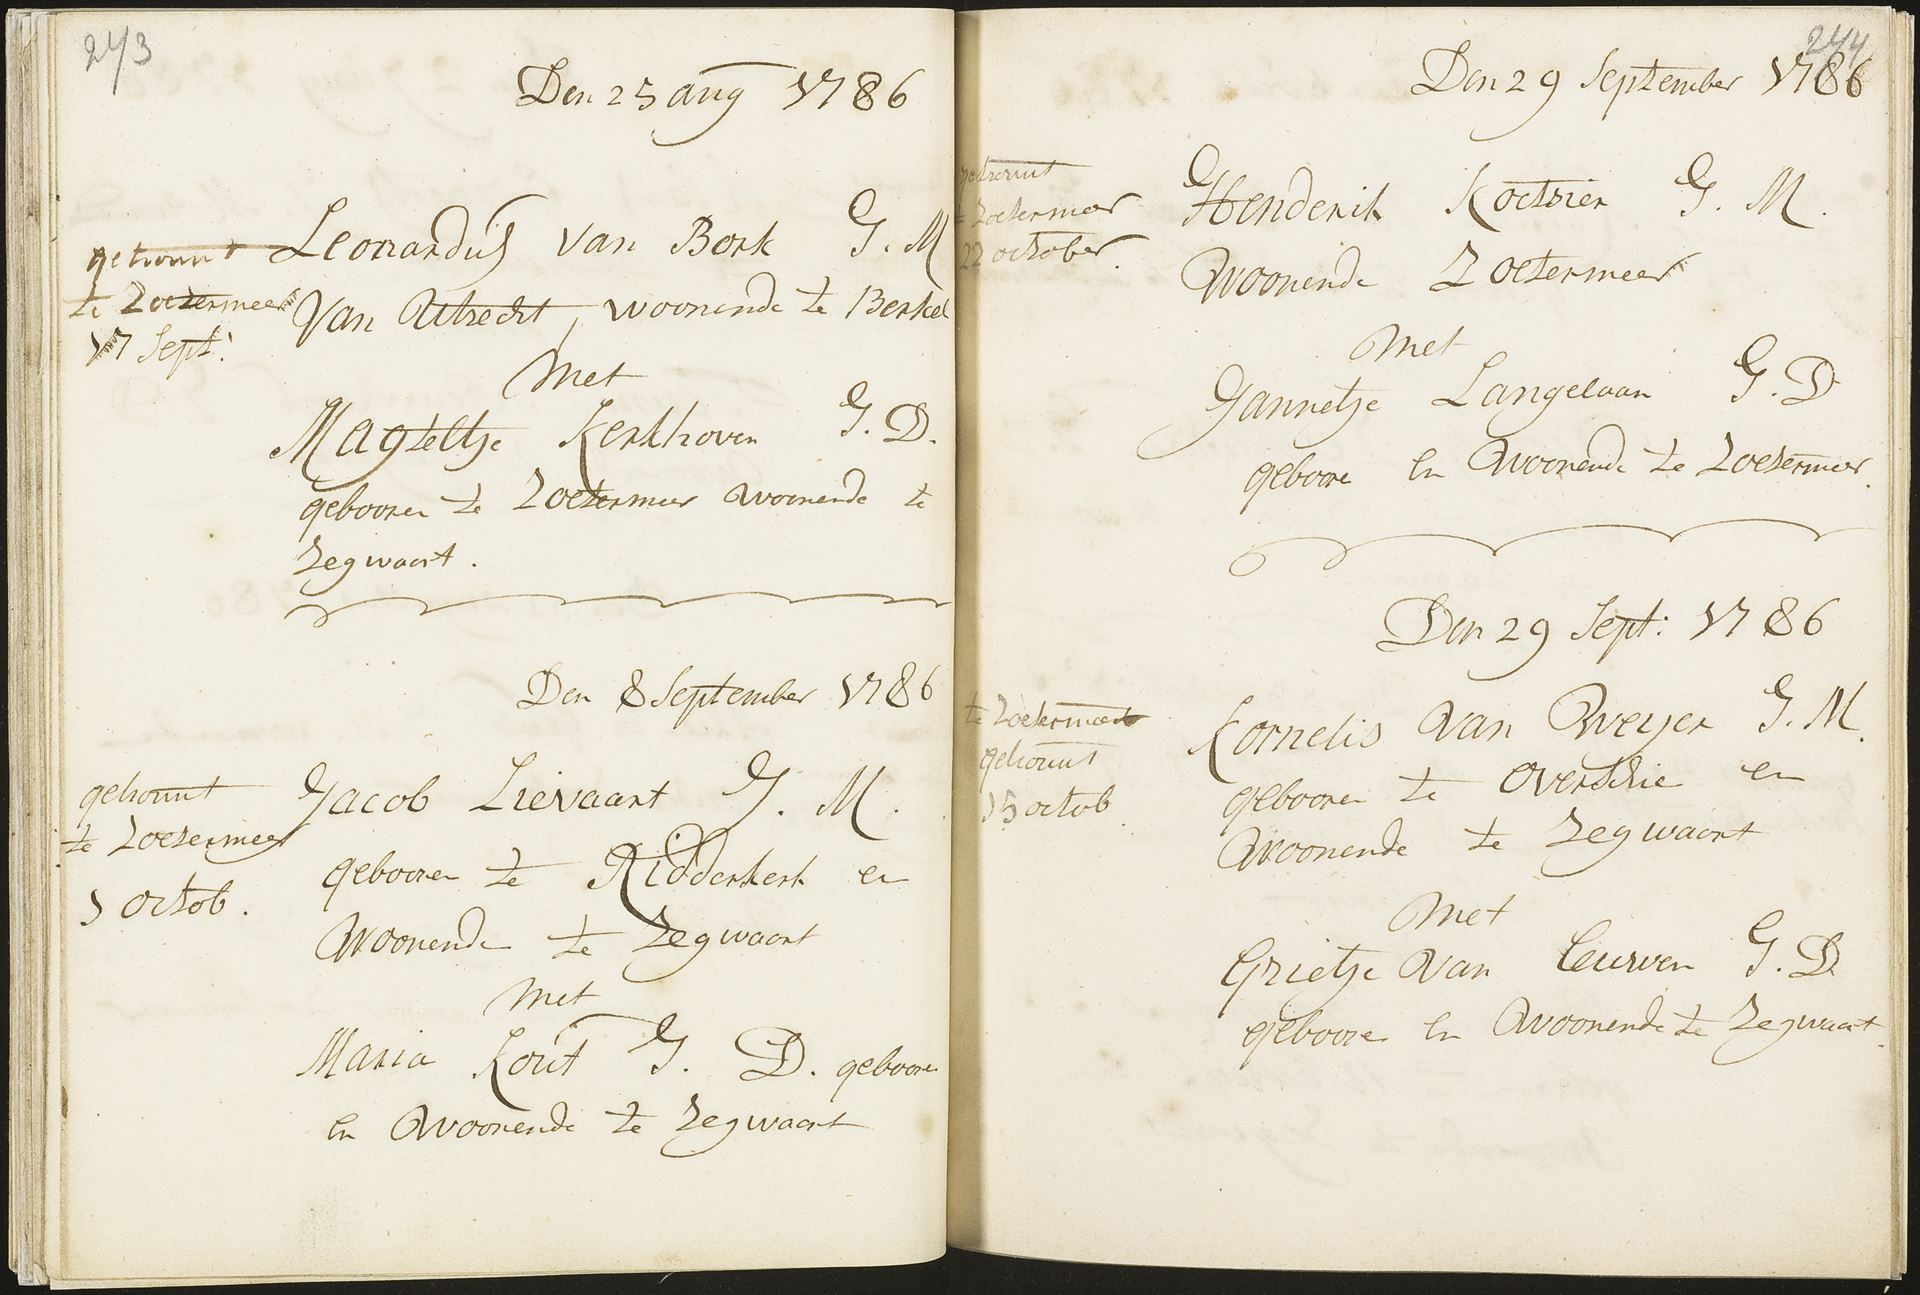 243
Den 25 aug 1786
getrouwt
te Zoetermeer
17 Sept:
Leonardus van Bork G. M
Van Utrecht, woonende te Berkel
Met
Magteltje Kerkhoven G. D.
gebooren te Zoetermeer woonende te
Zegwaart.
Den 8 September 1786
getrouwt
te Zoetermeer
1 octob.
Jacob Lievaart G. M.
gebooren te Ridderkerk en
Woonende te Zegwaart
Met
Maria Kout G. D. geboore
en Woonende te Zegwaart
244
Den 29 September 1786
getrouwt
Zoetermeer
22 october.
Henderik Koetsier G. M.
Woonende Zoetermeer
Met
Jannetje Langelaan G. D
geboore en Woonende te Zoetermeer.
Den 29 Sept: 1786
te Zoetermeer
getrouwt
15 octob.
Kornelis van Weyer G. M.
gebooren te overschie en
Woonende te Zegwaart
Met
Grietje van Leuwen G. D
geboore en Woonende te Zegwaart.